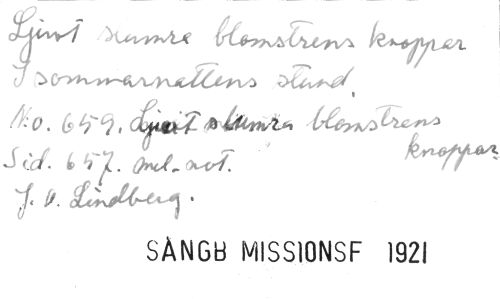 Ljuvt slumra blomstrens knoppar
I sommarnattens stund.
No. 659. Ljuvt slumra blomstrens
knoppar.
Sid. 657. mel. not.
J. A. Lindberg.
SÅNGB MISSIONSF 1921